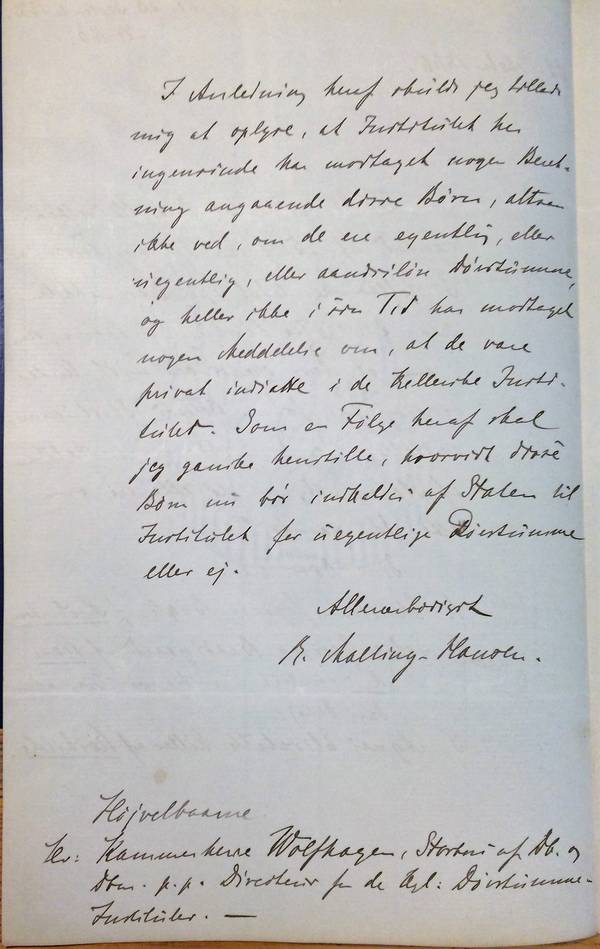 I Anledning heraf skulde jeg tillade
mig at oplyse, at Institutet her
ingensinde har modtaget nogen Beret-
ning angaaende disse Børn, altsaa
ikke ved, om de ere egentlig, eller
uegentlig, eller aandssløve Døvstumme,
og heller ikke i sin Tid har modtaget
nogen Meddelelse om, at de vare
privat indsatte i de Kellerske Insti-
tuter. Som en Følge heraf skal
jeg ganske henstille, hvorvidt disse
Børn nu bør indkaldes af Staten til
Institutet for uegentlige Døvstumme
eller ej.
Allerærbødigst
R. Malling-Hansen.
Højvelbaarne
Hr: Kammerherre Wolfhagen, Storkors af Db. og
Dbm. p.p. Directeur for de Kgl: Døvstumme-
Instituter. —